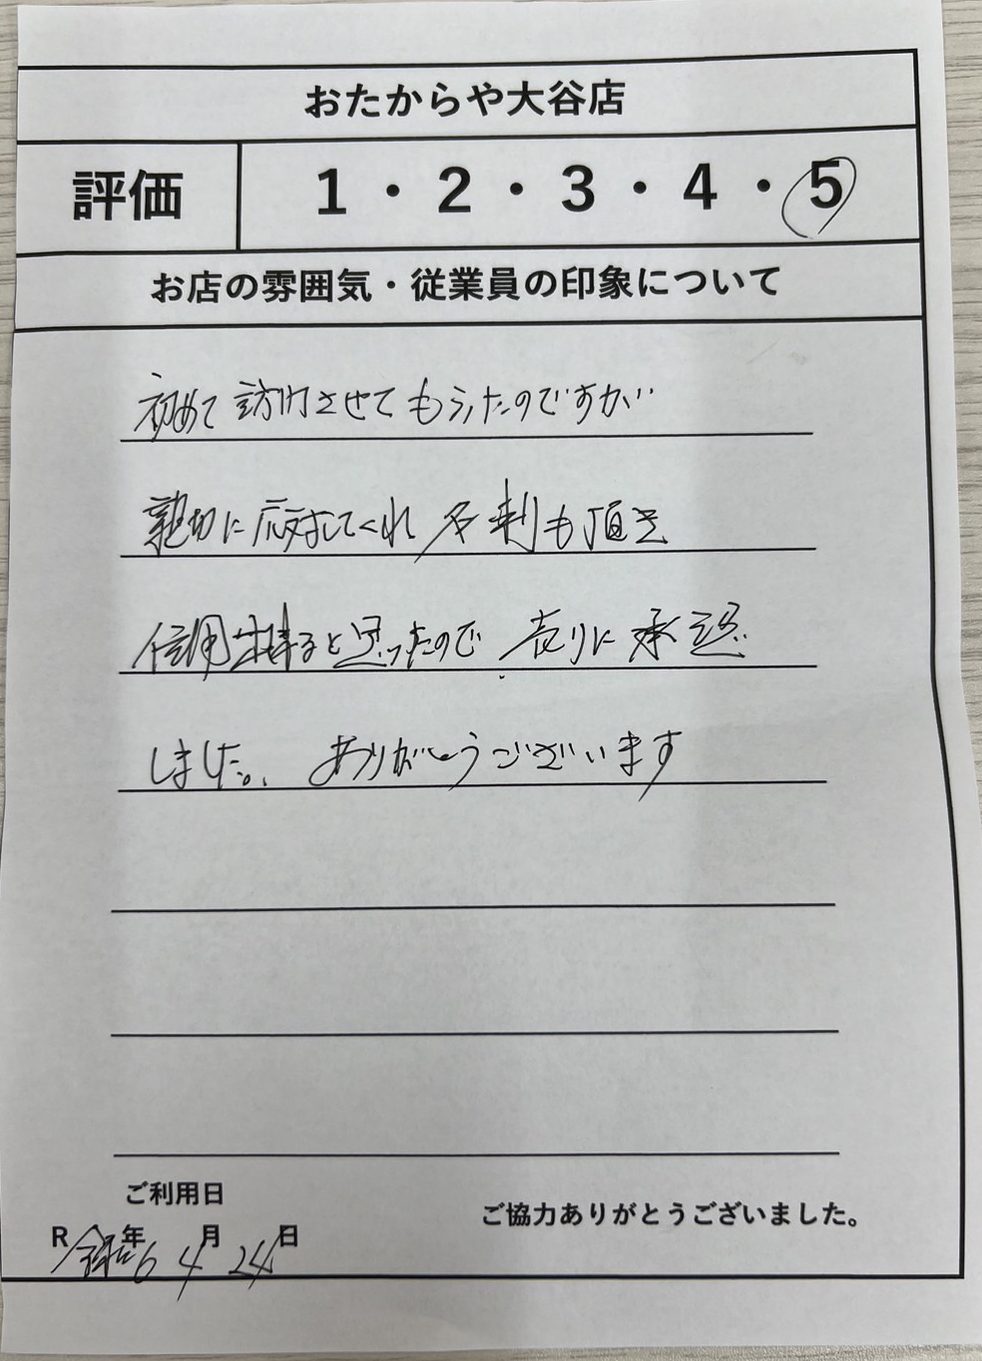 おたからや大谷店
評価 1・2・3・4・5
お店の雰囲気・従業員の印象について
初めて訪門させてもらったのですが
親切に応対してくれ名刺も頂き
信用出来ると思ったので売りに承認
しました。ありがとうございます
ご利用日
ご協力ありがとうございました。
R 年 月 日
令和6 4 24